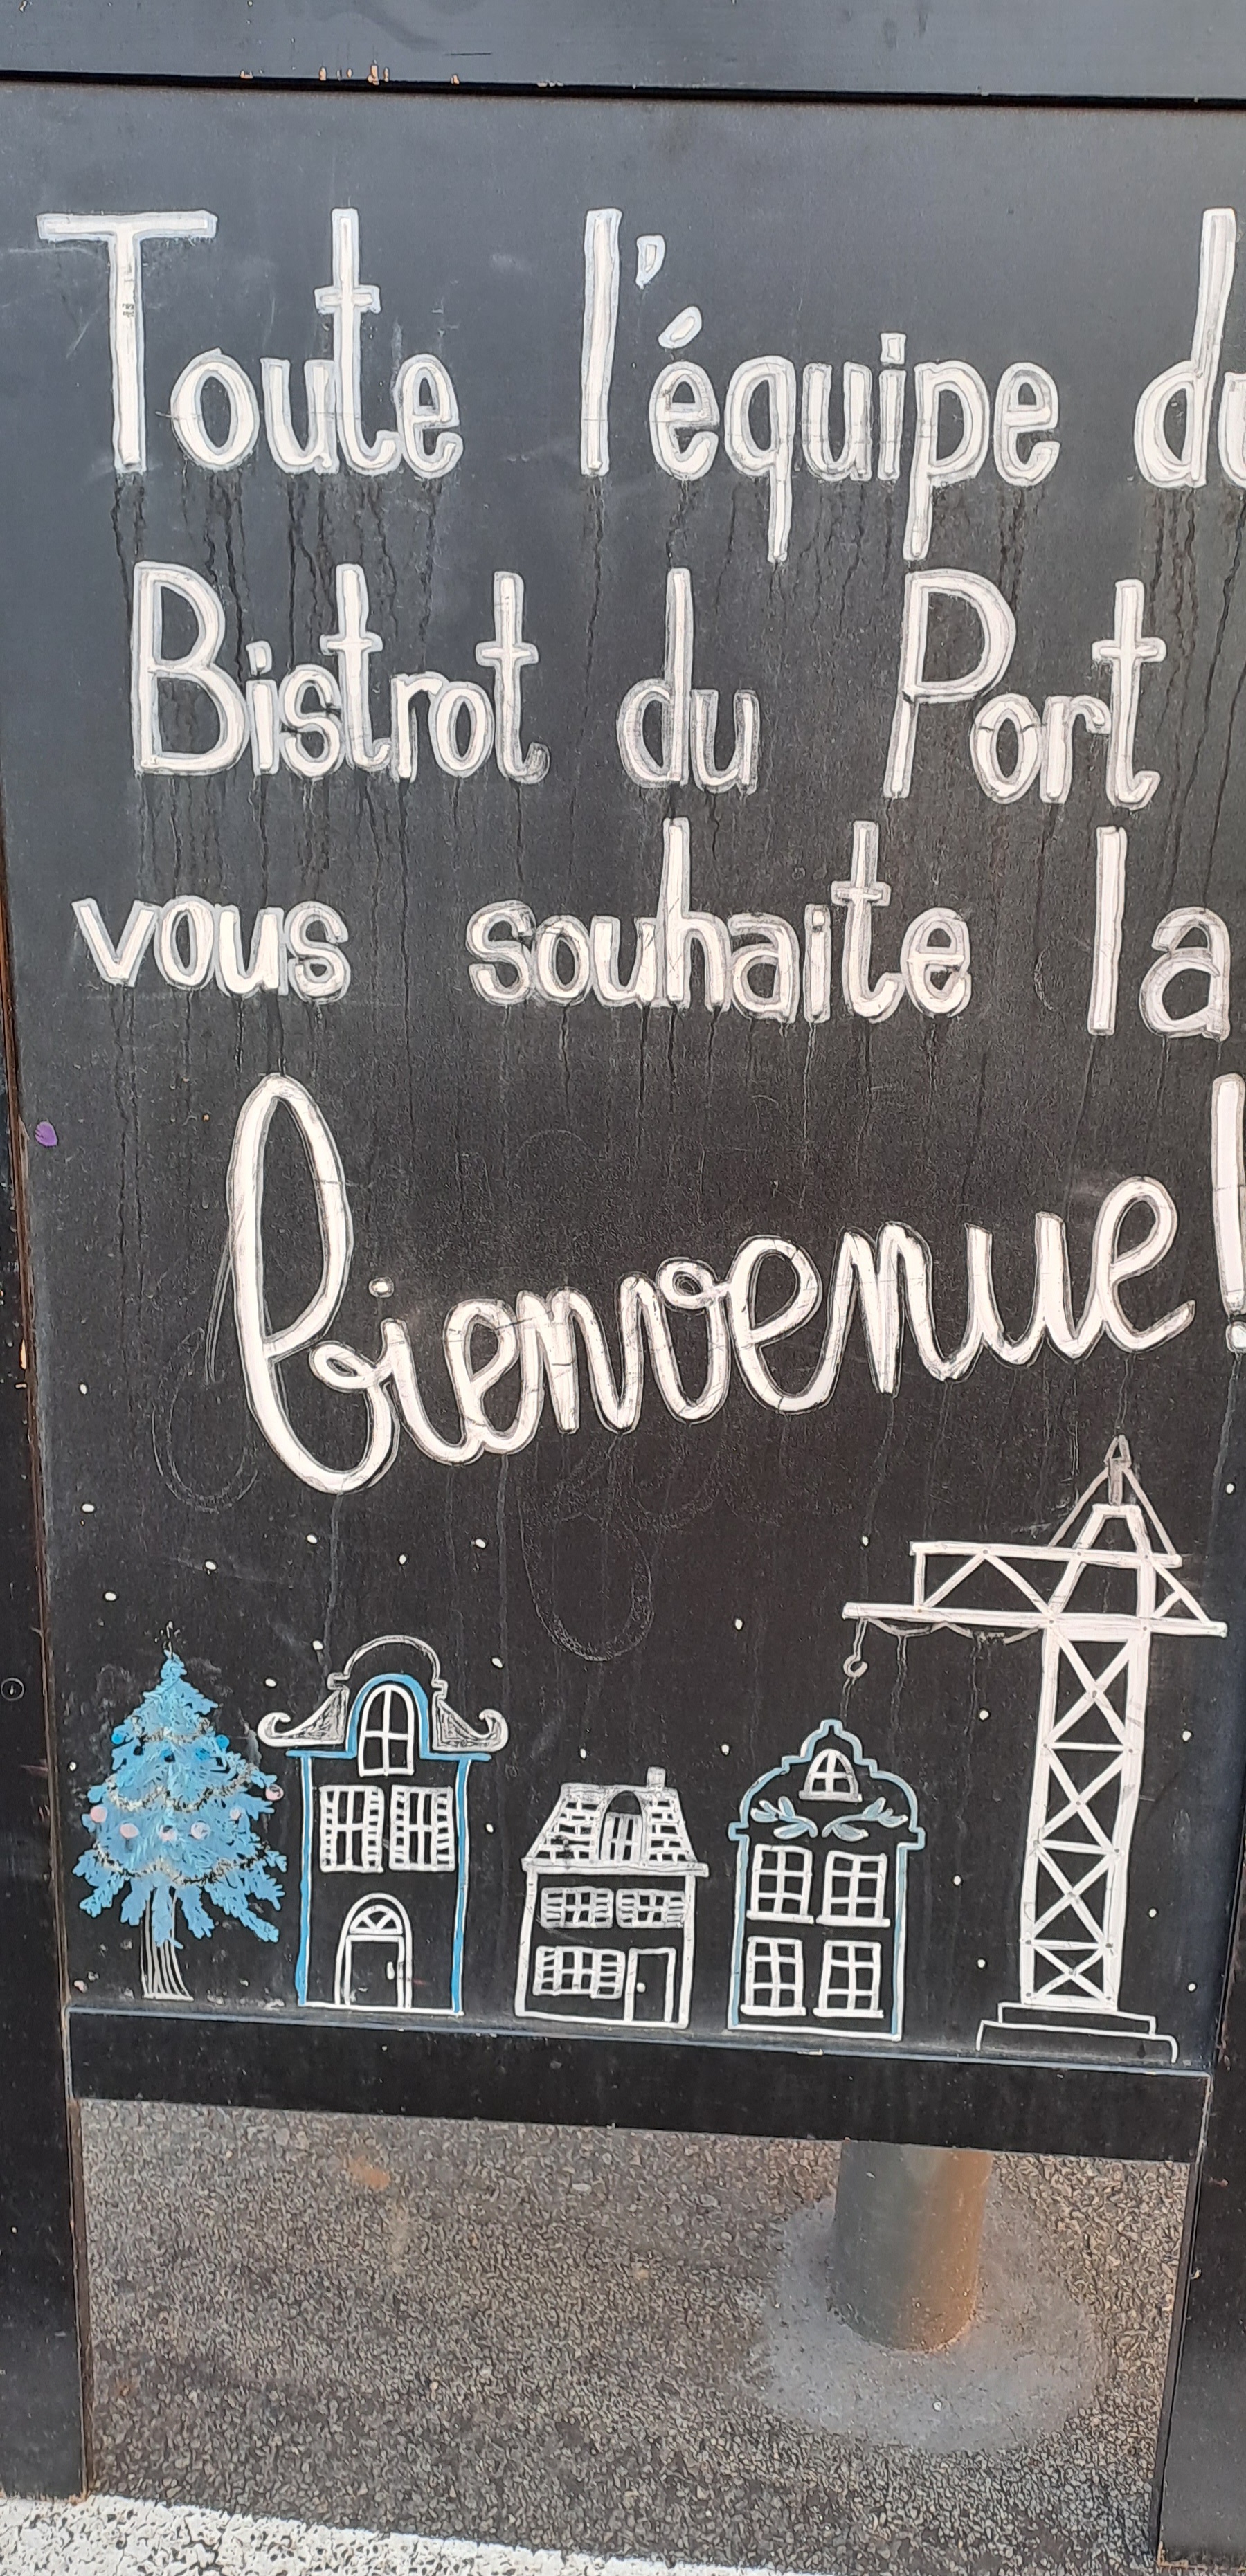 Toute l'équipe du
Bistrot du Port
vous souhaite la
bienvenue !